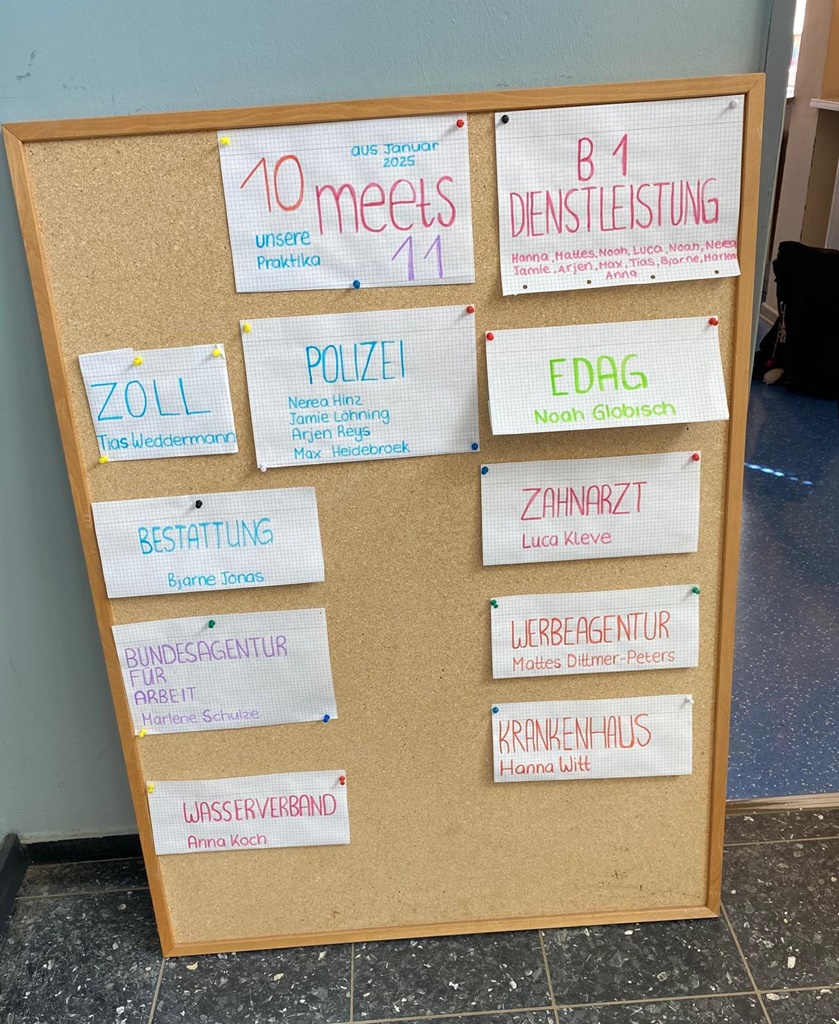 aus Januar
2025
10 meets
unsere
Praktika
11
B 1
DIENSTLEISTUNG
Hanna, Mattes, Noah, Luca, Noah, Nerea
Jamie, Arjen, Max, Tias, Bjarne, Marlen
Anna
ZOLL
Tias Weddermann
POLIZEI
Nerea Hinz
Jamie Löhning
Arjen Reys
Max Heidebroek
EDAG
Noah Globisch
BESTATTUNG
Bjarne Jonas
ZAHNARZT
Luca Kleve
BUNDESAGENTUR
FÜR
ARBEIT
Marlene Schulze
WERBEAGENTUR
Mattes Dittmer-Peters
KRANKENHAUS
Hanna Witt
WASSERVERBAND
Anna Koch